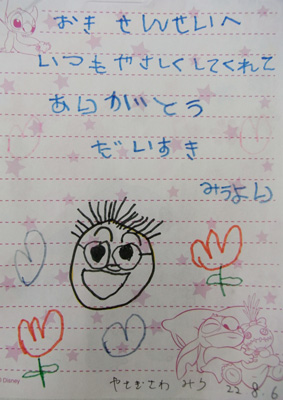 おき せんせいへ
いつもやさしくしてくれて
ありがとう
だいすき
みうより
みう 22.8.6
Disney